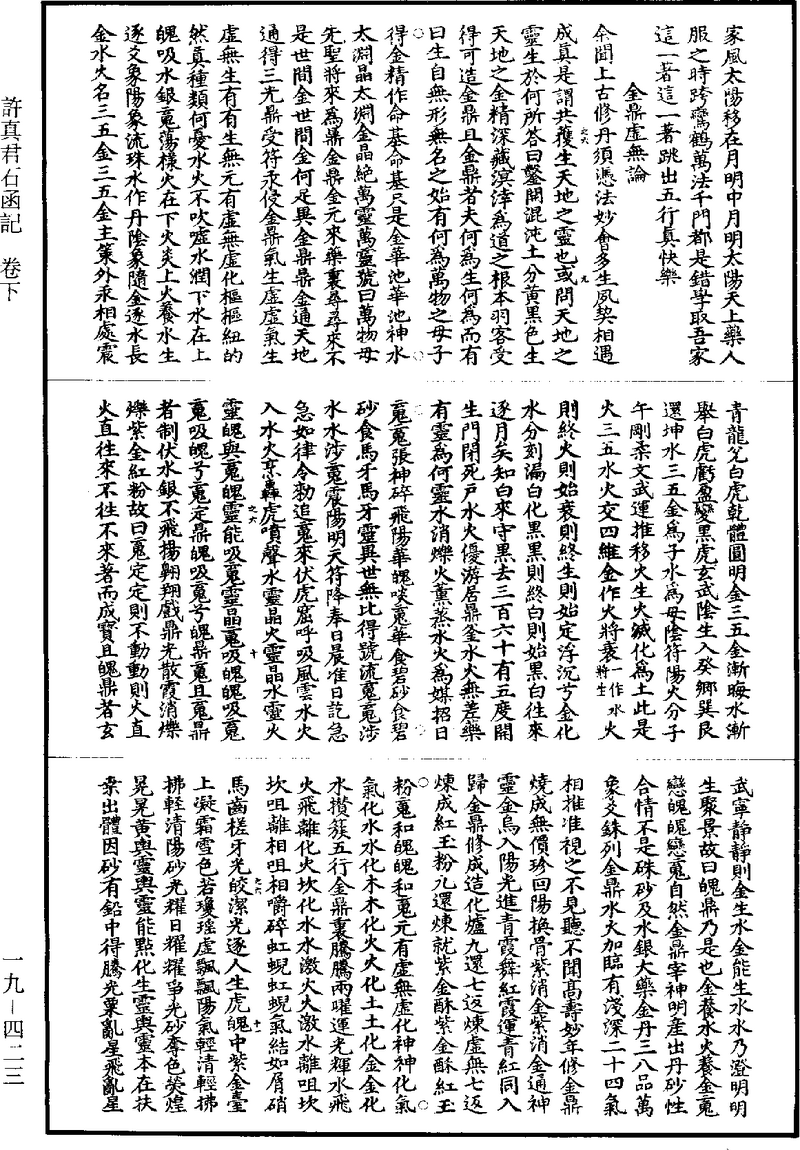 家風太陽移在月明中月明太陽天上藥人
服之時跨鸞鶴萬法千門都是錯學取吾家
這一著這一著跳出五行真快樂
金鼎虛無論
余聞上古修丹須憑法妙會多生夙契相遇
成真是謂共穫生天地之靈也或問天地之
靈生於何所答曰鑿開混沌土分黃黑色生
天地之金精深藏溟涬為道之根本羽客受
得可造金鼎且金鼎者夫何為生何為而有
曰生自無形無名之始有何為萬物之母子
得金精作命基命基只是金華池華池神水
太淵晶太淵金晶絕萬靈萬靈號曰萬物母
先聖將來為鼎金鼎金元來藥裏尋尋來不
是世間金世間金何足異金鼎鼎金通天地
通得三光鼎受符汞侵金鼎氣生虛虛氣生
虛無生有有生無元有虛無虛化樞樞紐的
然真種類何憂水火不吹噓水潤下水在上
魄吸水銀䰟蕩樣火在下火炎上火養水生
逐爻象陽象流珠水作丹陰象隨金逐水長
金水火名三五金三五金主策外汞相處震
青龍兌白虎乾體圓明金三五金漸晦水漸
舉白虎虧盈變黑虎玄武陰生入癸鄉巽艮
還坤水三五金為子水為母陰符陽火分子
午剛柔文武運推移火生火緘化為土此是
火三五水火交四維金作火將衰一作水將生火
則終火則始衰則終生則始定浮沉兮金化
水分刻漏白化黑黑則終白則始黑白往來
逐月矣知白來守黑去三百六十有五度開
生門閉死戶水火優游居鼎釜水火無差藥
有靈為何靈水消爍火薰蒸水火為媒招日
䰟䰟張神碎飛陽華魄啖䰟華食碧砂食碧
砂食馬牙馬牙靈異世無比得號流䰟䰟涉
水水涉䰟震陽明天符降奉日晨准日訖急
急如律令勑追䰟來伏虎窟呼吸風雲水火
入水火烹轟虎噴聲水靈晶火靈晶水靈火
靈魄與䰟魄靈能吸䰟靈晶䰟吸魄魄吸䰟
䰟吸魄兮䰟定鼎魄吸䰟兮魄鼎䰟且䰟鼎
者制伏水銀不飛揚翱翔戲鼎光散霞消爍
爍紫金紅粉故曰䰟定定則不動動則火直
火直往來不往不來著而成寶且魄鼎者玄
武寧静静則金生水金能生水水乃澄明明
生聚景故曰魄鼎乃是也金養水火養金䰟
戀魄魄戀䰟自然金鼎宰神明産出丹砂性
合情不是硃砂及水銀大藥金丹三八品萬
象爻銖列金鼎水火加臨有淺深二十四氣
相推准視之不見聽不聞高壽妙年修金鼎
燒成無價珍回陽換骨紫消金紫消金通神
靈金烏入陽光進青霞舞紅霞運青紅同入
歸金鼎修成造化爐九還七返煉虛無七返
煉成紅玉粉九還煉就紫金酥紫金酥紅玉
粉䰟和魄魄和䰟元有虛無虛化神神化氣
氣化水水化木木化火火化土土化金金化
水攢簇五行金鼎裏騰騰兩曜運光輝水飛
火飛離化火坎化水水激火火激水離咀坎
坎咀離相咀相嚼碎虹蜺虹蜺氣結如屑硝
馬齒槎牙光皎潔光逐人生虎魄中紫金臺
上凝霜雪色若瓊瑶虛飄飄陽氣輕清輕拂
拂輕清陽砂光耀日耀耀當光砂奪色熒煌
晃晃黃輿靈輿靈能點化生靈輿靈本在扶
棄出體因砂有鉛中得騰光粟亂星飛亂星
許真君石函記　卷下
一九-四二三